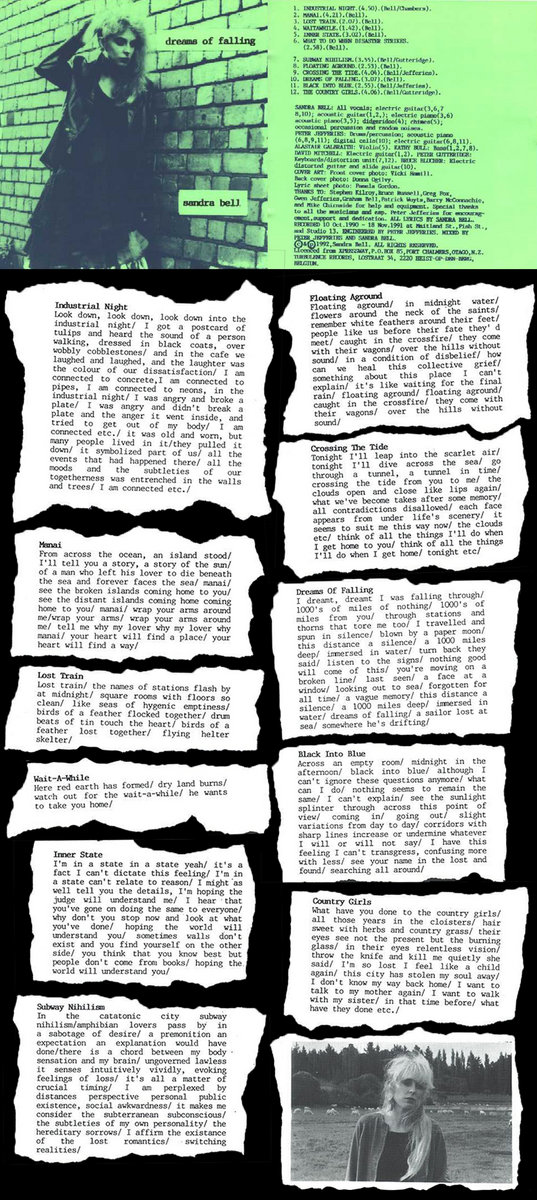 dreams of falling
sandra bell
1. INDUSTRIAL NIGHT.(4.50).(Bell/Chambers).
2. MANAI.(4.21).(Bell).
3. LOST TRAIN.(2.07).(Bell).
4. WAITAWHILE.(1.42).(Bell).
5. INNER STATE.(3.02).(Bell).
6. WHAT TO DO WHEN DISASTER STRIKES.
(2.58).(Bell).
7. SUBWAY NIHILISM.(3.55).(Bell/Gutteridge).
8. FLOATING AGROUND.(2.53).(Bell).
9. CROSSING THE TIDE.(4.04).(Bell/Jefferies).
10. DREAMS OF FALLING.(3.07).(Bell).
11. BLACK INTO BLUE.(2.55).(Bell/Jefferies).
12. THE COUNTRY GIRLS.(4.06).(Bell/Gutteridge).
SANDRA BELL: All vocals; electric guitar(3,6,7
8,10); acoustic guitar(1,2,); electric piano(3,6)
acoustic piano(3,5); didgeridoo(4); chimes(5);
occasional percussion and random noises.
PETER JEFFERIES: Drums/percussion; acoustic piano
(6,8,9,11); digital cello(10); electric guitar(6,8,11).
ALASTAIR GALBRAITH: Violin(5). KATHY BULL: Bass(1,2,7,8).
DAVID MITCHELL: Electric guitar(1,2). PETER GUTTERIDGE:
Keyboards/distortion unit(7,12). BRUCE BLUCHER: Electric
distorted guitar and slide guitar(10).
COVER ART: Front cover photo: Vicki Hamill.
Back cover photo: Donna Ogilvy.
Lyric sheet photo: Pamela Gordon.
THANKS TO: Stephen Kilroy,Bruce Russell,Greg Fox,
Gwen Jefferies,Graham Bell,Patrick Woyts,Barry McConnachie,
and Mike Chirnside for help and equipment. Special thanks
to all the musicians and esp. Peter Jefferies for encourag-
ement,support and dedication. ALL LYRICS BY SANDRA BELL.
RECORDED 10 Oct.1990 - 18 Nov.1991 at Maitland St.,Fish St.,
and Studio 13. ENGINEERED BY PETER JEFFERIES. MIXED BY
PETER JEFFERIES AND SANDRA BELL.
©&℗1992,Sandra Bell. ALL RIGHTS RESERVED.
Licenced from XPRESSWAY,P.O.BOX 85,PORT CHALMERS,OTAGO,N.Z.
TURBULENCE RECORDS, LOSTRAAT 34, 2220 HEIST-OP-DEN-BERG,
BELGIUM.
Industrial Night
Look down, look down, look down into the
industrial night/ I got a postcard of
tulips and heard the sound of a person
walking, dressed in black coats, over
wobbly cobblestones/ and in the cafe we
laughed and laughed, and the laughter was
the colour of our dissatisfaction/ I am
connected to concrete,I am connected to
pipes, I am connected to neons, in the
industrial night/ I was angry and broke a
plate/ I was angry and didn't break a
plate and the anger it went inside, and
tried to get out of my body/ I am
connected etc./ it was old and worn, but
many people lived in it/they pulled it
down/ it symbolized part of us/ all the
events that had happened there/ all the
moods and the subtleties of our
togetherness was entrenched in the walls
and trees/ I am connected etc./
Manai
From across the ocean, an island stood/
I'll tell you a story, a story of the sun/
of a man who left his lover to die beneath
the sea and forever faces the sea/ manai/
see the broken islands coming home to you/
see the distant islands coming home coming
home to you/ manai/ wrap your arms around
me/wrap your arms/ wrap your arms around
me/ tell me why my lover why my lover why
manai/ your heart will find a place/ your
heart will find a way/
Lost Train
Lost train/ the names of stations flash by
at midnight/ square rooms with floors so
clean/ like seas of hygenic emptiness/
birds of a feather flocked together/ drum
beats of tin touch the heart/ birds of a
feather lost together/ flying helter
skelter/
Wait-A-While
Here red earth has formed/ dry land burns/
watch out for the wait-a-while/ he wants
to take you home/
Inner State
I'm in a state in a state yeah/ it's a
fact I can't dictate this feeling/ I'm in
a state can't relate to reason/ I might as
well tell you the details, I'm hoping the
judge will understand me/ I hear that
you've gone on doing the same to everyone/
why don't you stop now and look at what
you've done/ hoping the world will
understand you/ sometimes walls don't
exist and you find yourself on the other
side/ you think that you know best but
people don't come from books/ hoping the
world will understand you/
Subway Nihilism
In the catatonic city subway
nihilism/amphibian lovers pass by in
a sabotage of desire/ a premonition an
expectation an explanation would have
done/there is a chord between my body
sensation and my brain/ ungoverned lawless
it senses intuitively vividly, evoking
feelings of loss/ it's all a matter of
crucial timing/ I am perplexed by
distances perspective personal public
existence, social awkwardness/ it makes me
consider the subterranean subconscious/
the subtleties of my own personality/ the
hereditary sorrows/ I affirm the existance
of the lost romantics/ switching
realities/
Floating Aground
Floating aground/ in midnight water/
flowers around the neck of the saints/
remember white feathers around their feet/
people like us before their fate they' d
meet/ caught in the crossfire/ they come
with their wagons/ over the hills without
sound/ in a condition of disbelief/ how
can we heal this collective grief/
something about this place I can't
explain/ it's like waiting for the final
rain/ floating aground/ floating aground/
caught in the crossfire/ they come with
their wagons/ over the hills without
sound/
Crossing The Tide
Tonight I'll leap into the scarlet air/
tonight I'll dive across the sea/ go
through a tunnel, a tunnel in time/
crossing the tide from you to me/ the
clouds open and close like lips again/
what we've become takes after some memory/
all contradictions disallowed/ each face
appears from under life's scenery/ it
seems to suit me this way now/ the clouds
etc/ think of all the things I'll do when
I get home to you/ think of all the things
I'll do when I get home/ tonight etc/
Dreams Of Falling
I dreamt, dreamt I was falling through/
1000's of miles of nothing/ 1000's of
miles from you/ through stations and
thorns that tore me too/ I travelled and
spun in silence/ blown by a paper moon/
this distance a silence/ a 1000 miles
deep/ immersed in water/ turn back they
said/ listen to the signs/ nothing good
will come of this/ you're moving on a
broken line/ last seen/ a face at a
window/ looking out to sea/ forgotten for
all time/ a vague memory/ this distance a
silence/ a 1000 miles deep/ immersed in
water/ dreams of falling/ a sailor lost at
sea/ somewhere he's drifting/
Black Into Blue
Across an empty room/ midnight in the
afternoon/ black into blue/ although I
can't ignore these questions anymore/ what
can I do/ nothing seems to remain the
same/ I can't explain/ see the sunlight
splinter through across this point of
view/ coming in/ going out/ slight
variations from day to day/ corridors with
sharp lines increase or undermine whatever
I will or will not say/ I have this
feeling I can't transgress, confusing more
with less/ see your name in the lost and
found/ searching all around/
Country Girls
What have you done to the country girls/
all those years in the cloisters/ hair
sweet with herbs and country grass/ their
eyes see not the present but the burning
glass/ in their eyes relentless vision/
throw the knife and kill me quietly she
said/ I'm so lost I feel like a child
again/ this city has stolen my soul away/
I don't know my way back home/ I want to
talk to my mother again/ I want to walk
with my sister/ in that time before/ what
have they done etc./